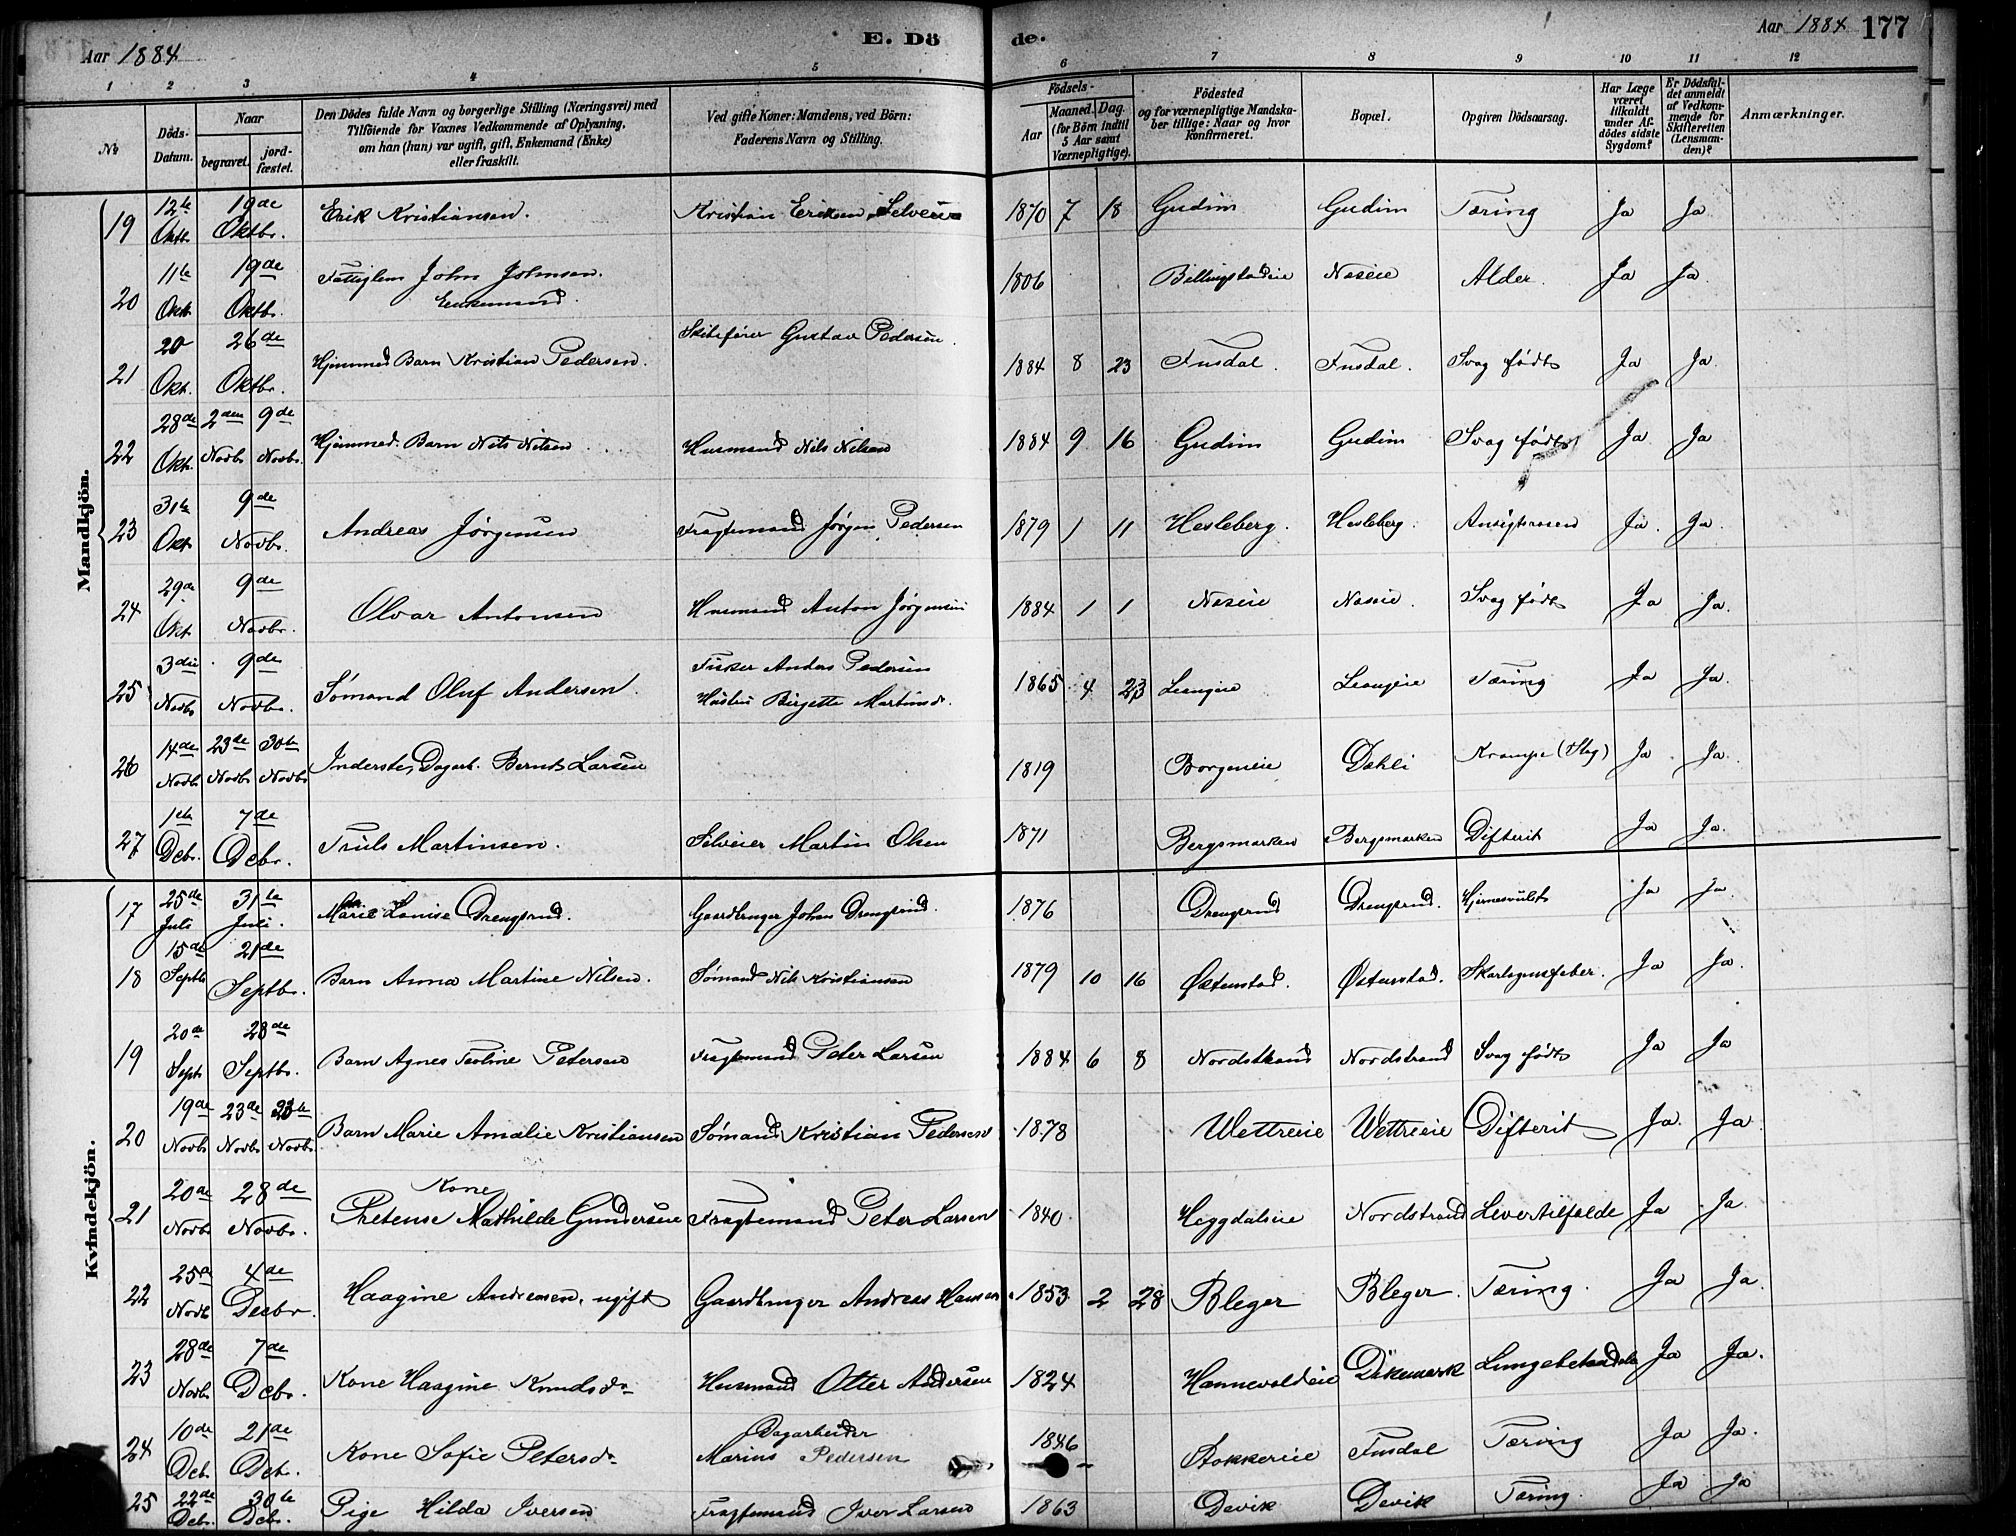 Aar 1884 E. Dö de. Aar 1884 177
1 2 3 4 5 6 7 8 9 10 11 12
№ Döds-Datum. Naar begravet. jord-fæstet. Den Dödes fulde Navn og borgerlige Stilling (Næringsvei) med Tilföiende for Voxnes Vedkommende af Oplysning, om han (hun) var ugift, gift, Enkemand (Enke) eller fraskilt. Ved gifte Koner: Mandens, ved Börn: Faderens Navn og Stilling. Födsels- Aar Maaned. Dag. (for Börn indtil 5 Aar samt Værnepligtige). Födested og for værnepligtige Mandskaber tillige: Naar og hvor konfirmeret. Bopæl. Opgiven Dödsaarsag. Har Læge været tilkaldt under Afdödes sidste Sygdom? Er Dödsfaldet anmeldt af Vedkommende for Skifteretten (Lensmanden)? Anmærkninger.
Mandkjön.
19 12te Oktbr 19de Oktbr. Erik Kristiansen. Kristian Eriksen, Selveier 1870 7 18 Gudim Gudim Tæring Ja Ja
20 11te Okt. 19de Oktbr. Fattiglem John Johnsen. Enkemand. 1806 Billingstadeie Næseie Alder. Ja Ja.
21 20 Okt. 26de Oktbr. Hjemmed. Barn Kristian Pedersen. Skibsfører Gustav Pedersen. 1884 8 23 Fusdal. Fusdal. Svag født Ja Ja.
22 28de Okt. 2den Novbr. 9de Novbr. Hjemmed. Barn Nils Nilsen Husmand Nils Nilsen 1884 9 16 Gudim Gudim Svag født Ja Ja
23 31te Okt. 9de Novbr. Andreas Jørgensen Fragtemand Jørgen Pedersen 1879 1 11 Hesleberg. Hesleberg. Ansigtsrosen Ja. Ja.
24 29de Okt. 9de Novbr. Olvar Antonsen Husmand Anton Jørgensen 1884 1 1 Næseie Næseie. Svag født Ja Ja.
25 3die Novbr 9de Novbr. Sømand Oluf Andersen. Fisker Anders Pedersen Hustru Birgette Martinsdr. 1865 4 23 Leangeie Leangeie Tæring Ja Ja.
26 14de Novbr 23de Novbr 30te Novbr Inderste, Dagarb. Bernt Larsen 1819 Borgeneie Dæhli Krampe (Slag) Ja Ja.
27 1ste Decbr. 7de Decbr. Truls Martinsen. Selveier Martin Olsen 1871 Bergsmarken Bergsmarken Difterit Ja Ja.
Kvindekjön.
17 25de Juli 31te Juli. Marie Louise Drengsrud. Gaardbruger Johan Drengsrud. 1876 Drengsrud Drengsrud. Hjernesvulst Ja Ja.
18 15de Septbr 21de Septbr. Barn Anna Martine Nilsen. Sømand Nils Kristiansen 1879 10 16 Østenstad. Østenstad. Skarlagensfeber. Ja Ja.
19 20de Sept. 28de Septbr. Barn Agnes Teoline Petersen Fragtemand Peter Larsen 1884 6 8 Nordstrand Nordstrand Svag født Ja Ja
20 19de Novbr 23de Novbr 23de Novbr. Barn Marie Amalie Kristiansen Sømand Kristian Pedersen 1878 Wettreeie Wettreeie Difterit Ja. Ja
21 20de Novbr 28de Novbr. Kone Pretense Mathilde Gundersen Fragtemand Peter Larsen 1840 Heggdalseie Nordstrand Livertilfælde Ja Ja.
22 25de Novbr 4de Decbr. Haagine Andreasen, ugift Gaardbruger Andreas Hansen 1853 2 28 Bleger Bleger. Tæring. Ja Ja.
23 28de Novbr. 7de Decbr. Kone Haagine Knudsdr. Husmand Otter Andersen 1824 Hannevoldeie Dikemark Lungebetændelse Ja Ja.
24 10de Decb. 21de Decb. Kone Sofie Petersdr. Dagarbeider Marius Pedersen 1846 Stokkereie Fusdal Tæring Ja Ja.
25 22de Decbr. 30te Decbr. Pige Hilda Iversen Fragtemand Iver Larsen 1863 Devik Devik Tæring. Ja Ja